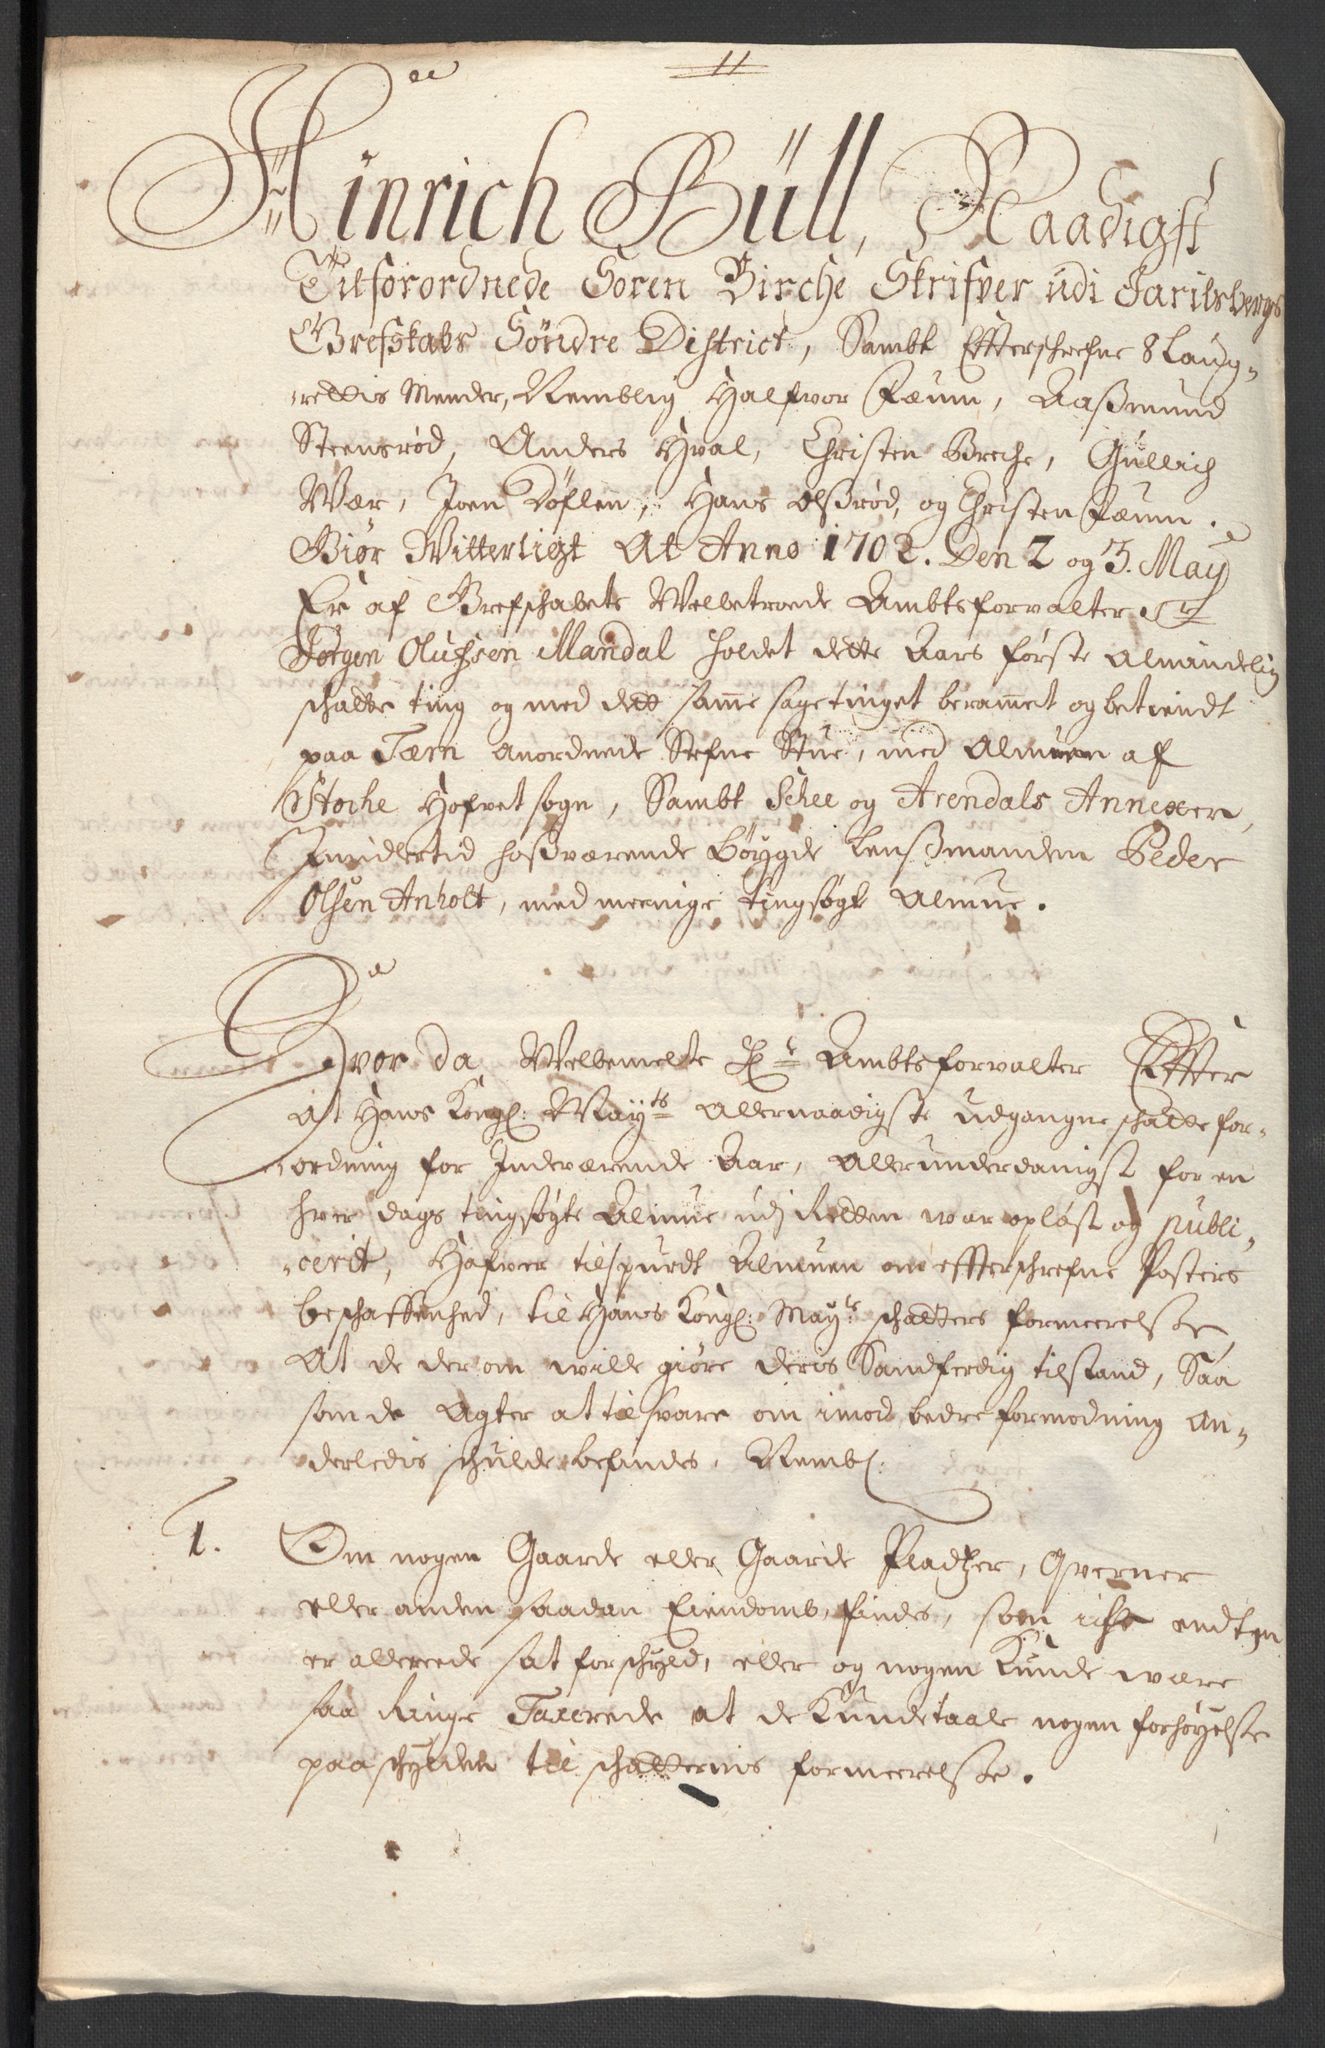 11
Hinrich Büll, Naadigst
Tilforordnede Soren Birche Skrifver udi Jarilsbergs
Grefskabs Söndre District, Sambt Effterschrefne 8 Laug-
rettis Mender, Nemblig Halfvor Ræum, Aaßmund
Steensrød, Anders Hval, Christen Breche, Gullich
Wær, Joen Døflen, Hans Olßrød, og Christen Ræum.
Giør Witterligt At Anno 1702. Den 2 og 3. May
Er af Grefschabets Welbetroede Ambtsforvalter Sr
Jörgen Olufsen Mandal holdet dette Aars første almindelig
schatte ting og med dett samme sagetinget berammet og betiendt
paa Tæm anordnede Stefne Stue, med Almuen af
Stoche Hofvet sogn, Sambt Schee og Arendals Annexer,
Imidlertid hoßværende Böygde Lenßmanden Peder
Olsen Anholt, med meenige tingsøgt Almue.
Hvor da Welbemelte Hr Ambtsforvalter Effter
at Hans Kongl: Mayts Allernaadigste udgangne schatte for-
ordning for Indeværende Aar, Allerunderdanigst for en
hver dags tingsøgte Almue udj Retten war opløst og publi-
cerit, Hafver tilspurdt Almuen om effterschrefne Posters
beschaffenhed, til Hans Kongl: Mayts schatters formeerelse,
At de der om wille giøre deris Sandferdig tilstand, Saa
som de Agter at tilsvare om imod bedre formodning an-
derledis schulde befindes, Nembl:
1. Om nogen Gaarde eller Gaarde Pladtzer, Qverner
eller anden saadan Eiendomb, findes, som iche endten
er allereede sat for schyld, eller og nogen Kunde were
saa Ringe Taxerede at de Kunde taale nogen forhøyelse
paa schylden til schatternis formeerelse.